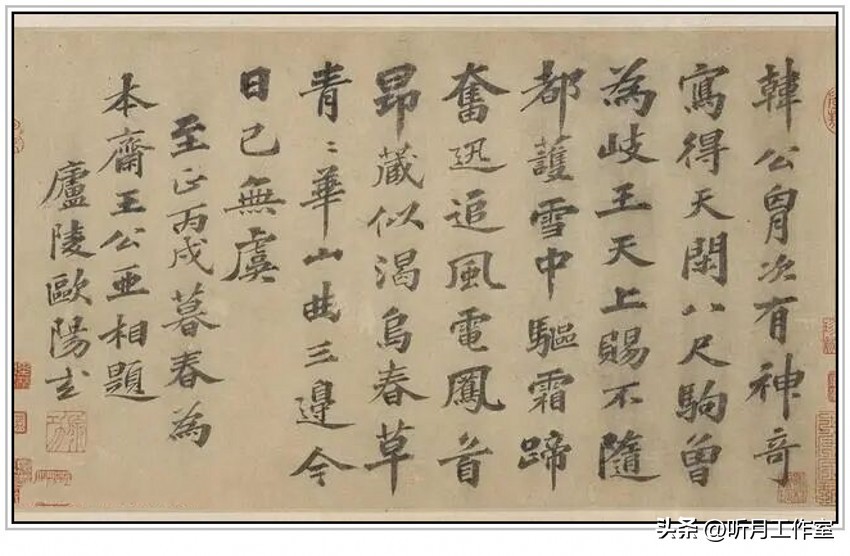 韓公胷次有神奇
寫得天閑八尺駒曾
為岐王天上賜不隨
都護雪中驅霜蹄
奮迅追風電鳳首
昂藏似渴烏春草
青〻華山曲三邊今
日已無虞
至正丙戌暮春為
本齋王公亞相題
廬陵歐陽玄
头条 @听月工作室